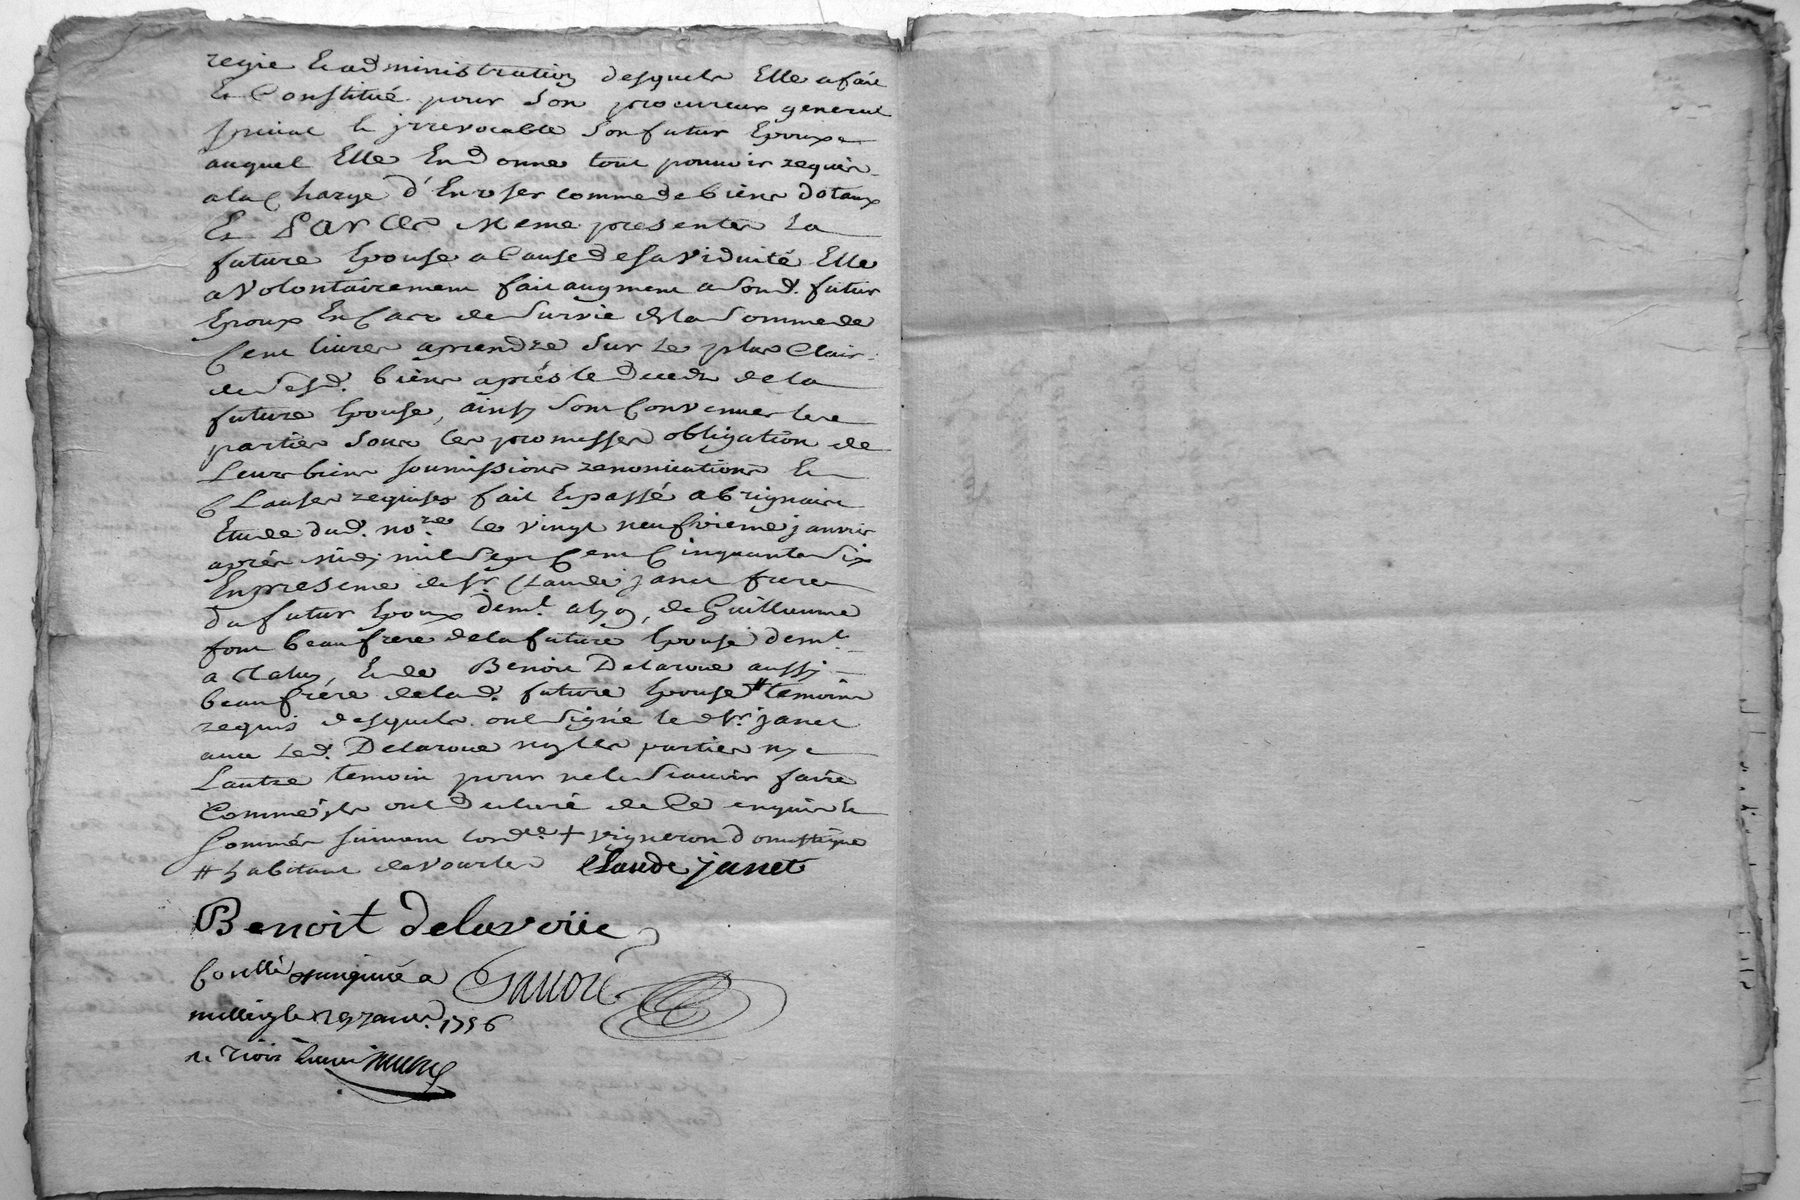 regie & administration desquels Elle a fait
& Constitué pour Son procureur general
special & jrrevocable Son futur Epoux
auquel Elle En donne tout pouvoir requis
a la Charge d'En user comme de biens dotaux
Et Par Ces Meme presentes La
future Epouse a Cause de sa viduité Elle
a Volontairement fait augment a Sond. futur
Epoux En Cas de Survie de la Somme de
Cent livres aprendre Sur Le plus Clair
de Sesd. biens aprés le deceds de la
future Epouse, ainsy Sont Convenues les
parties Sous les promesses obligation de
Leurs biens soumissions renonciations &
Clauses requises fait & passé a Brignais
Etude dud. no.re le vingt neufvieme janvier
aprés midy mil Sept Cent Cinquante Six
En presence de Sr. Claude janet frere
du futur Epoux demt. a lyon, de Guillaume
font beaufrere de la future Epouse demt.
a & de Benoit Delaroue aussy
beaufrére de lad. future Epouse # temoins
requis desquels ont Signé led. Sr. janet
avec Led. Delaroue ny les parties ny
Lautre temoin pour ne le Scavoir faire
Comme jls ont declaré de Ce enquis &
Sommés suivant lord.ce + vigneron domestique
# habitant de vourles Claude janet
Benoit Delaroüe
Conllé a
millery le 29 janvr. 1756
r. trois livres